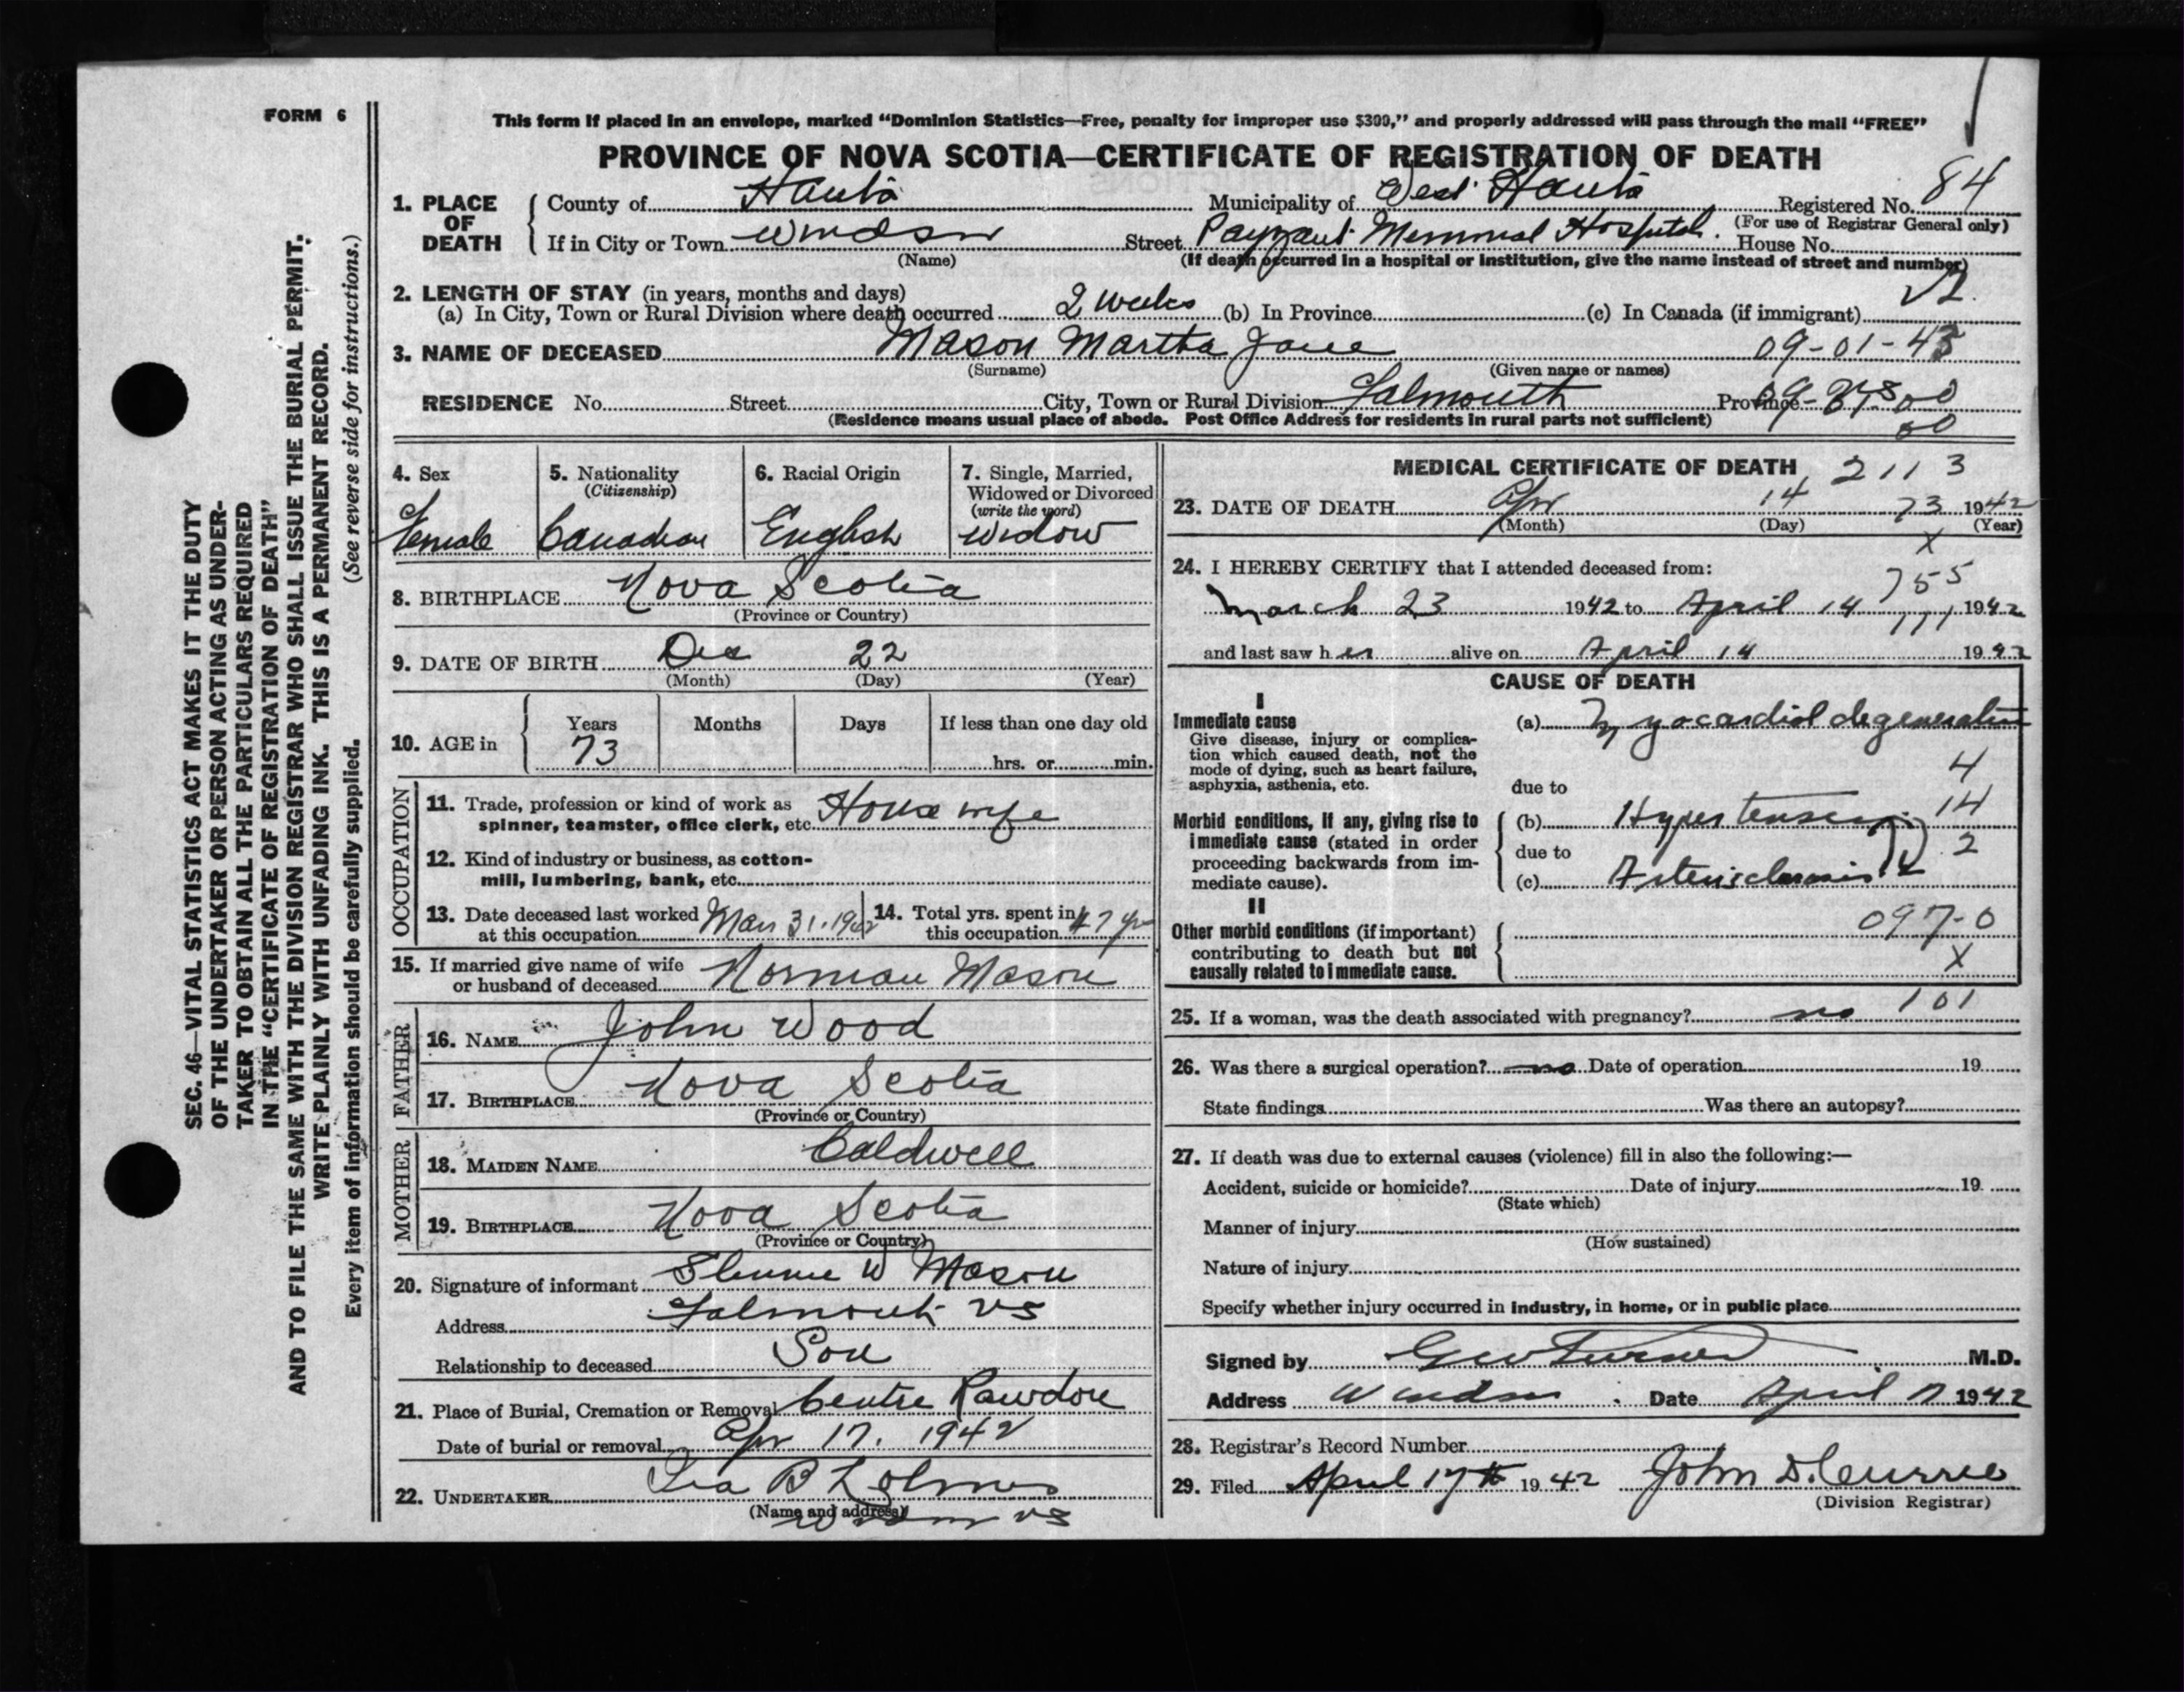 FORM 6
This form if placed in an envelope, marked “Dominion Statistics—Free, penalty for improper use $300,” and properly addressed will pass through the mail “FREE”
PROVINCE OF NOVA SCOTIA—CERTIFICATE OF REGISTRATION OF DEATH
1. PLACE OF DEATH
County of Hants Municipality of West Hants Registered No. 84
(For use of Registrar General only)
If in City or Town Windsor Street Payzant Memorial Hospital. House No.
(Name) (If death occurred in a hospital or institution, give the name instead of street and number)
2. LENGTH OF STAY (in years, months and days)
(a) In City, Town or Rural Division where death occurred 2 weeks (b) In Province (c) In Canada (if immigrant)
3. NAME OF DECEASED Mason Martha Jane 09-01-43
(Surname) (Given name or names)
RESIDENCE No. Street City, Town or Rural Division Falmouth Province
(Residence means usual place of abode. Post Office Address for residents in rural parts not sufficient)
4. Sex
Female
5. Nationality
(Citizenship)
Canadian
6. Racial Origin
English
7. Single, Married,
Widowed or Divorced
(write the word)
Widow
8. BIRTHPLACE Nova Scotia
(Province or Country)
9. DATE OF BIRTH Dec 22
(Month) (Day) (Year)
10. AGE in
Years Months Days If less than one day old
73 hrs. or min.
OCCUPATION
11. Trade, profession or kind of work as
spinner, teamster, office clerk, etc. House wife
12. Kind of industry or business, as cotton-
mill, lumbering, bank, etc.
13. Date deceased last worked
at this occupation Mar 31. 1942
14. Total yrs. spent in
this occupation 47 yr
15. If married give name of wife
or husband of deceased Norman Mason
FATHER
16. NAME John Wood
17. BIRTHPLACE Nova Scotia
(Province or Country)
MOTHER
18. MAIDEN NAME Caldwell
19. BIRTHPLACE Nova Scotia
(Province or Country)
20. Signature of informant W Mason
Address Falmouth NS
Relationship to deceased Son
21. Place of Burial, Cremation or Removal Centre Rawdon
Date of burial or removal Apr 17. 1942
22. UNDERTAKER Ira B
(Name and address)
Windsor NS
MEDICAL CERTIFICATE OF DEATH 2113
23. DATE OF DEATH Apr 14 73 1942
(Month) (Day) (Year)
X
24. I HEREBY CERTIFY that I attended deceased from:
755
March 23 1942 to April 14 1942
111
and last saw her alive on April 14 1942
CAUSE OF DEATH
I
Immediate cause
Give disease, injury or complica-
tion which caused death, not the
mode of dying, such as heart failure,
asphyxia, asthenia, etc.
(a) Myocardial degeneration
4
due to
14
Morbid conditions, if any, giving rise to
immediate cause (stated in order
proceeding backwards from im-
mediate cause).
(b) Hypertension
due to 2
(c) Arteriosclerosis
II
Other morbid conditions (if important)
contributing to death but not
causally related to immediate cause.
097-0
X
101
25. If a woman, was the death associated with pregnancy? no
26. Was there a surgical operation? no Date of operation 19
State findings Was there an autopsy?
27. If death was due to external causes (violence) fill in also the following:—
Accident, suicide or homicide? Date of injury 19
(State which)
Manner of injury
(How sustained)
Nature of injury
Specify whether injury occurred in industry, in home, or in public place
Signed by M.D.
Address Windsor Date April 17 1942
28. Registrar’s Record Number
29. Filed April 17th 1942 John D. Currie
(Division Registrar)
SEC. 46—VITAL STATISTICS ACT MAKES IT THE DUTY
OF THE UNDERTAKER OR PERSON ACTING AS UNDER-
TAKER TO OBTAIN ALL THE PARTICULARS REQUIRED
IN THE “CERTIFICATE OF REGISTRATION OF DEATH”
AND TO FILE THE SAME WITH THE DIVISION REGISTRAR WHO SHALL ISSUE THE BURIAL PERMIT.
WRITE PLAINLY WITH UNFADING INK. THIS IS A PERMANENT RECORD.
Every item of information should be carefully supplied. (See reverse side for instructions.)